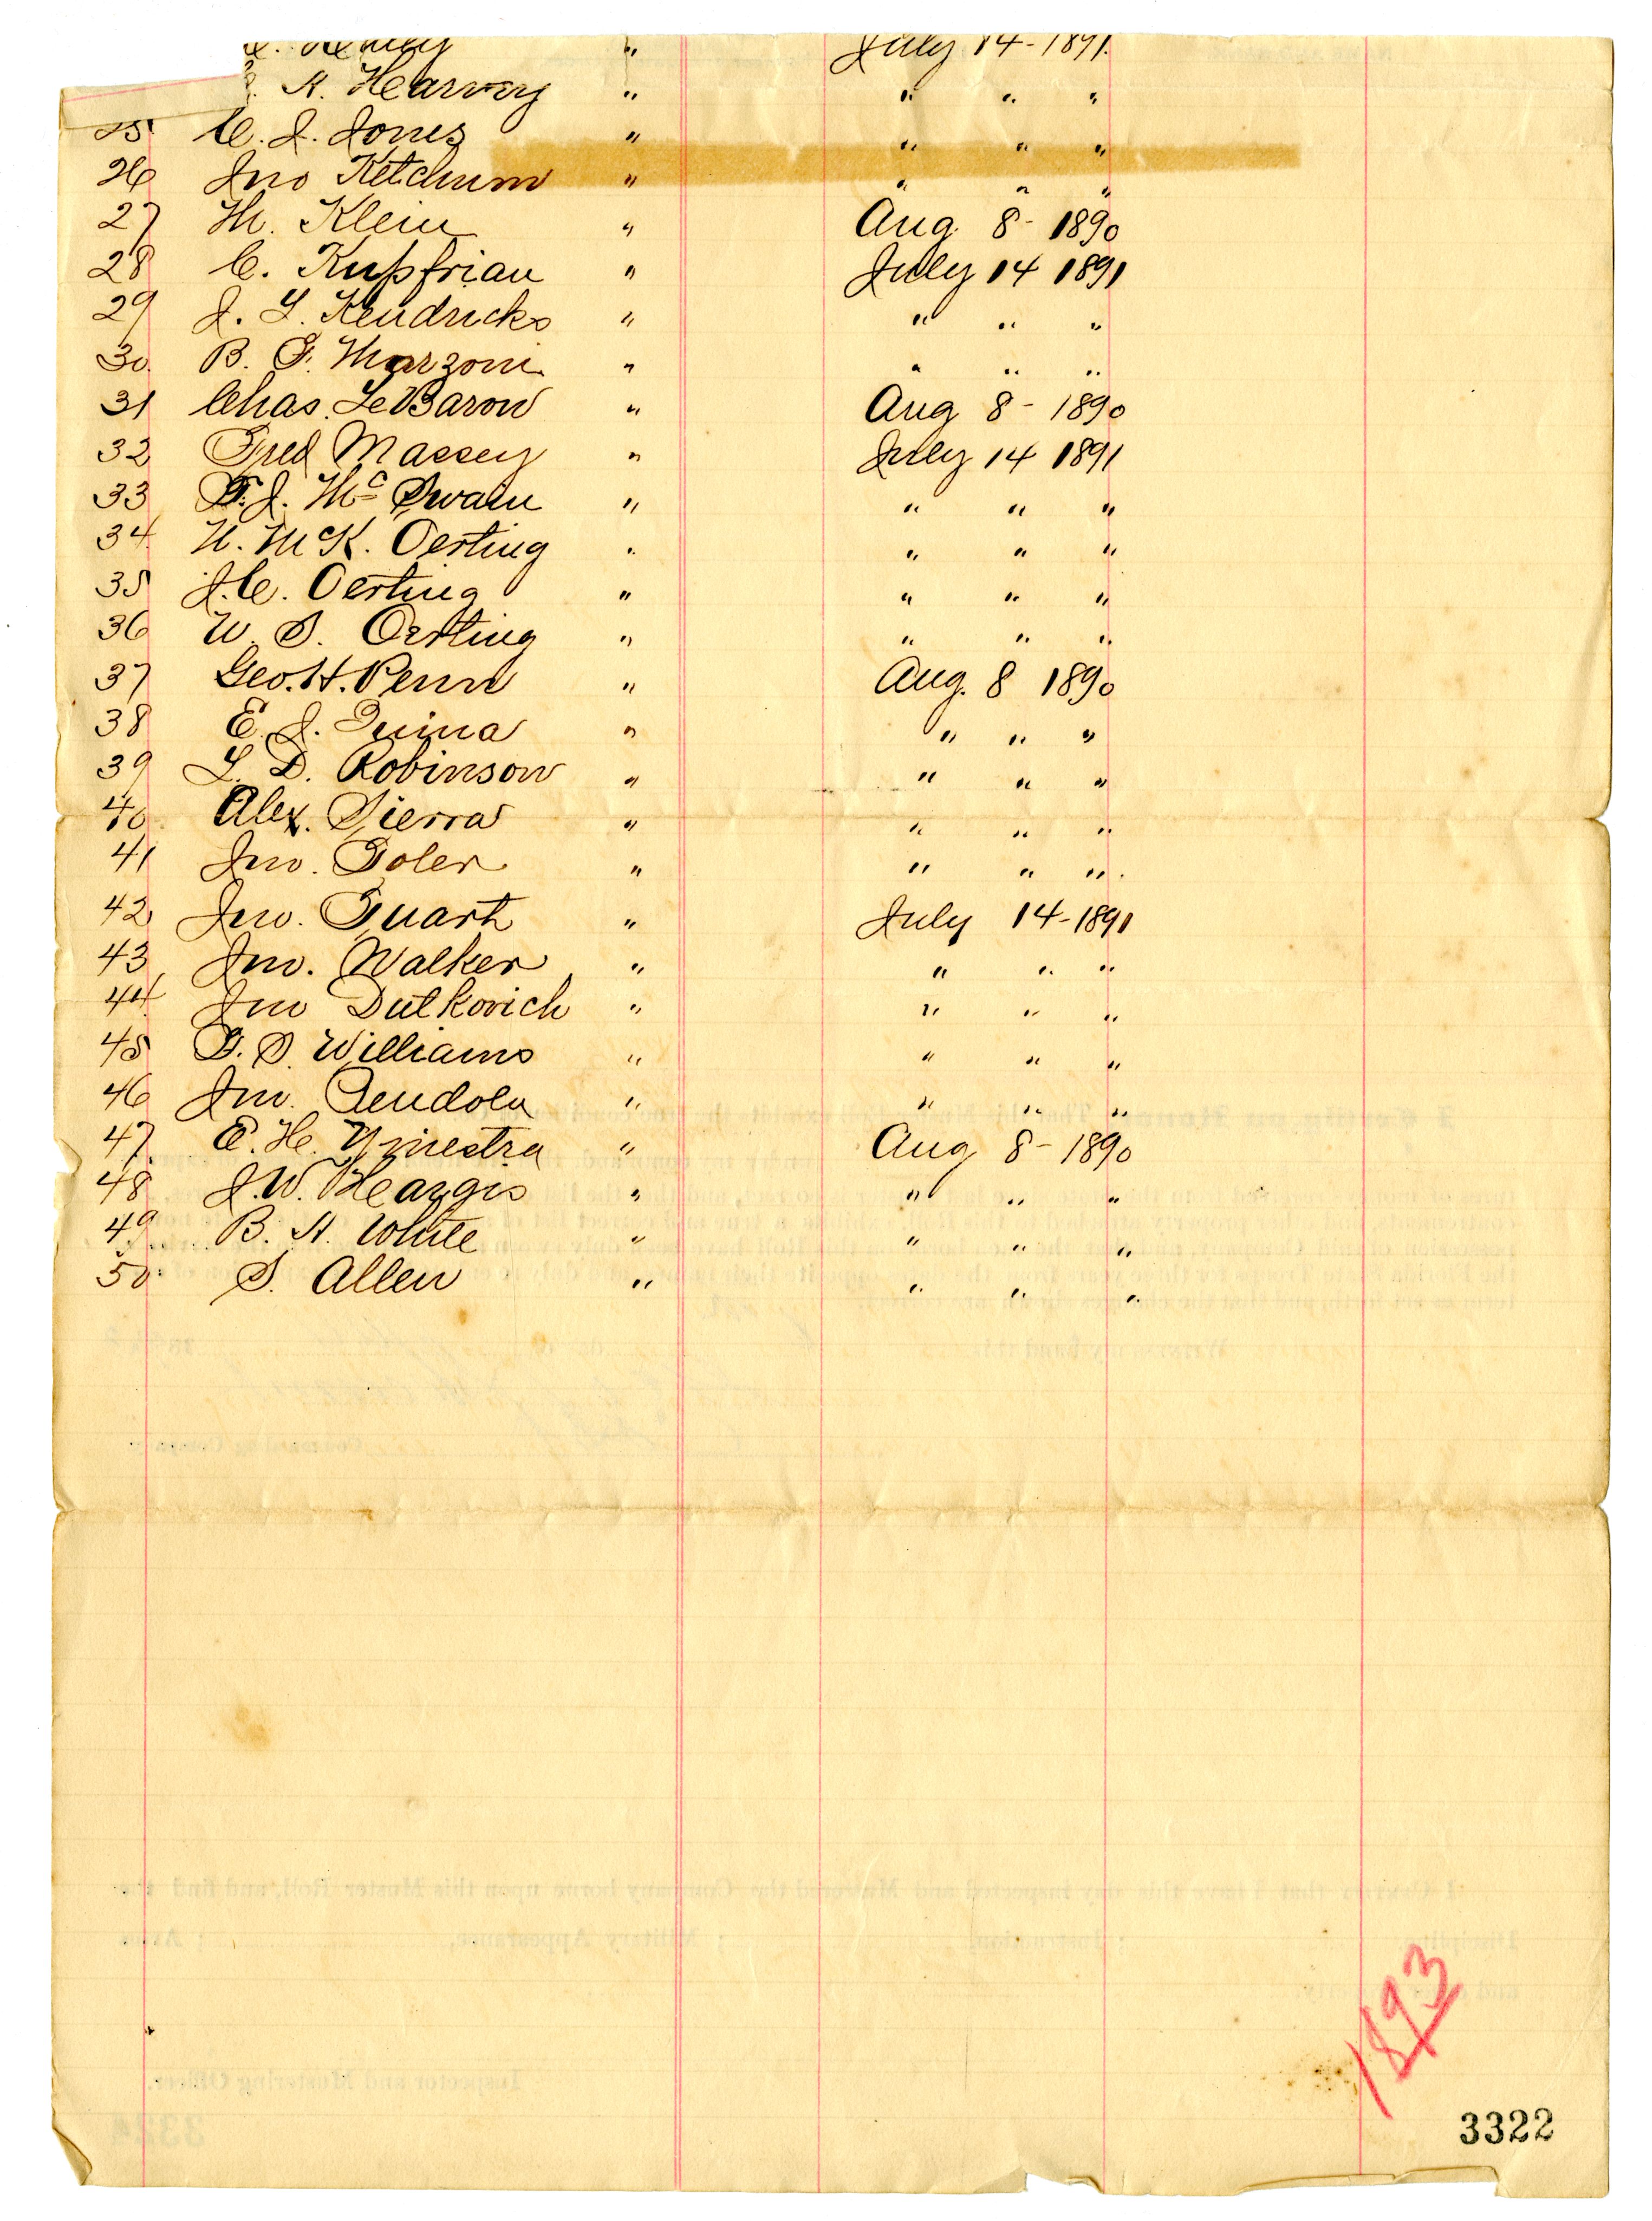 " July 14-1891.
H. Hearvey " " " "
25 C. J. Jones " " " "
26 Jno Ketchum " " " "
27 M. Klein " Aug. 8- 1890
28 C. Kupfrian " July 14 1891
29 J. L. Kendricks " " " "
30. B. F. Marzoni " " " "
31 Chas. LeBaron " Aug 8- 1890
32 Fred Massey " July 14 1891
33 F. J. Mc Swain " " " "
34. H. McK. Oerting " " " "
35 J. C. Oerting " " " "
36 W. S. Oerting " " " "
37 Geo. H. Penn " Aug. 8 1890
38 E. J. Quina " " " "
39 L. D. Robinson " " " "
40. Alex. Sierra " " " "
41 Jno. Soler " " " "
42 Jno. " July 14-1891
43 Jno. Walker " " " "
44. Jno Dutkovich " " " "
45 S. Williams " " " "
46 Jno. Pendola " " " "
47. E. H. Yniestra " Aug 8- 1890
48 J. W. Heargis " " " "
49 B. H. White " " " "
50. S. Allen " " " "
1893
3322